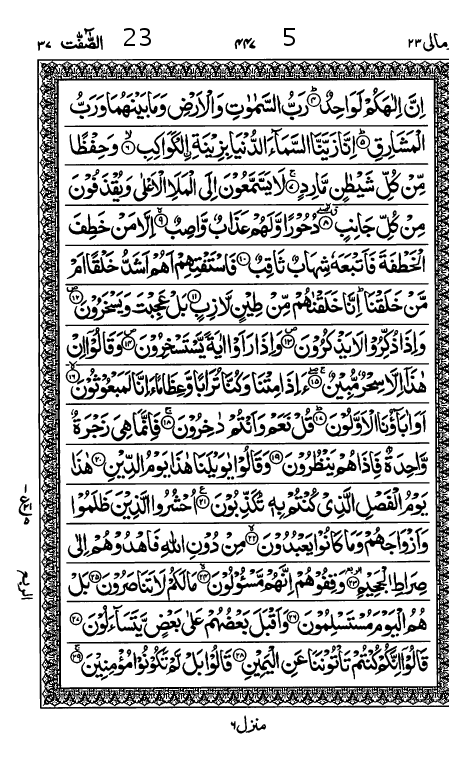 الصّٰٓفّٰت ٣٧ 23 ٤٤٧ 5 ومالى ٢٣
اِنَّ اِلٰهَكُمْ لَوَاحِدٌ ۝٤ رَبُّ السَّمٰوٰتِ وَالْاَرْضِ وَمَا بَيْنَهُمَا وَرَبُّ
الْمَشَارِقِ ۝٥ اِنَّا زَيَّنَّا السَّمَآءَ الدُّنْيَا بِزِيْنَةِ ِۨالْكَوَاكِبِ ۝٦ وَحِفْظًا
مِّنْ كُلِّ شَيْطٰنٍ مَّارِدٍ ۝٧ لَا يَسَّمَّعُوْنَ اِلَى الْمَلَاِ الْاَعْلٰى وَيُقْذَفُوْنَ
مِنْ كُلِّ جَانِبٍ ۝٨ دُحُوْرًا وَّلَهُمْ عَذَابٌ وَّاصِبٌ ۝٩ اِلَّا مَنْ خَطِفَ
الْخَطْفَةَ فَاَتْبَعَهٗ شِهَابٌ ثَاقِبٌ ۝١٠ فَاسْتَفْتِهِمْ اَهُمْ اَشَدُّ خَلْقًا اَمْ
مَّنْ خَلَقْنَا ؕ اِنَّا خَلَقْنٰهُمْ مِّنْ طِيْنٍ لَّازِبٍ ۝١١ بَلْ عَجِبْتَ وَيَسْخَرُوْنَ ۝١٢
وَاِذَا ذُكِّرُوْا لَا يَذْكُرُوْنَ ۝١٣ وَاِذَا رَاَوْا اٰيَةً يَّسْتَسْخِرُوْنَ ۝١٤ وَقَالُوْٓا اِنْ
هٰذَآ اِلَّا سِحْرٌ مُّبِيْنٌ ۝١٥ ءَاِذَا مِتْنَا وَكُنَّا تُرَابًا وَّعِظَامًا ءَاِنَّا لَمَبْعُوْثُوْنَ ۝١٦
اَوَاٰبَآؤُنَا الْاَوَّلُوْنَ ۝١٧ قُلْ نَعَمْ وَاَنْتُمْ دٰخِرُوْنَ ۝١٨ فَاِنَّمَا هِىَ زَجْرَةٌ
وَّاحِدَةٌ فَاِذَا هُمْ يَنْظُرُوْنَ ۝١٩ وَقَالُوْا يٰوَيْلَنَا هٰذَا يَوْمُ الدِّيْنِ ۝٢٠ هٰذَا
يَوْمُ الْفَصْلِ الَّذِىْ كُنْتُمْ بِهٖ تُكَذِّبُوْنَ ۝٢١ اُحْشُرُوا الَّذِيْنَ ظَلَمُوْا
وَاَزْوَاجَهُمْ وَمَا كَانُوْا يَعْبُدُوْنَ ۝٢٢ مِنْ دُوْنِ اللّٰهِ فَاهْدُوْهُمْ اِلٰى
صِرَاطِ الْجَحِيْمِ ۝٢٣ وَقِفُوْهُمْ اِنَّهُمْ مَّسْئُوْلُوْنَ ۝٢٤ مَا لَكُمْ لَا تَنَاصَرُوْنَ ۝٢٥ بَلْ
هُمُ الْيَوْمَ مُسْتَسْلِمُوْنَ ۝٢٦ وَاَقْبَلَ بَعْضُهُمْ عَلٰى بَعْضٍ يَّتَسَآءَلُوْنَ ۝٢٧
قَالُوْٓا اِنَّكُمْ كُنْتُمْ تَاْتُوْنَنَا عَنِ الْيَمِيْنِ ۝٢٨ قَالُوْا بَلْ لَّمْ تَكُوْنُوْا مُؤْمِنِيْنَ ۝٢٩
الربع
منزل ٦